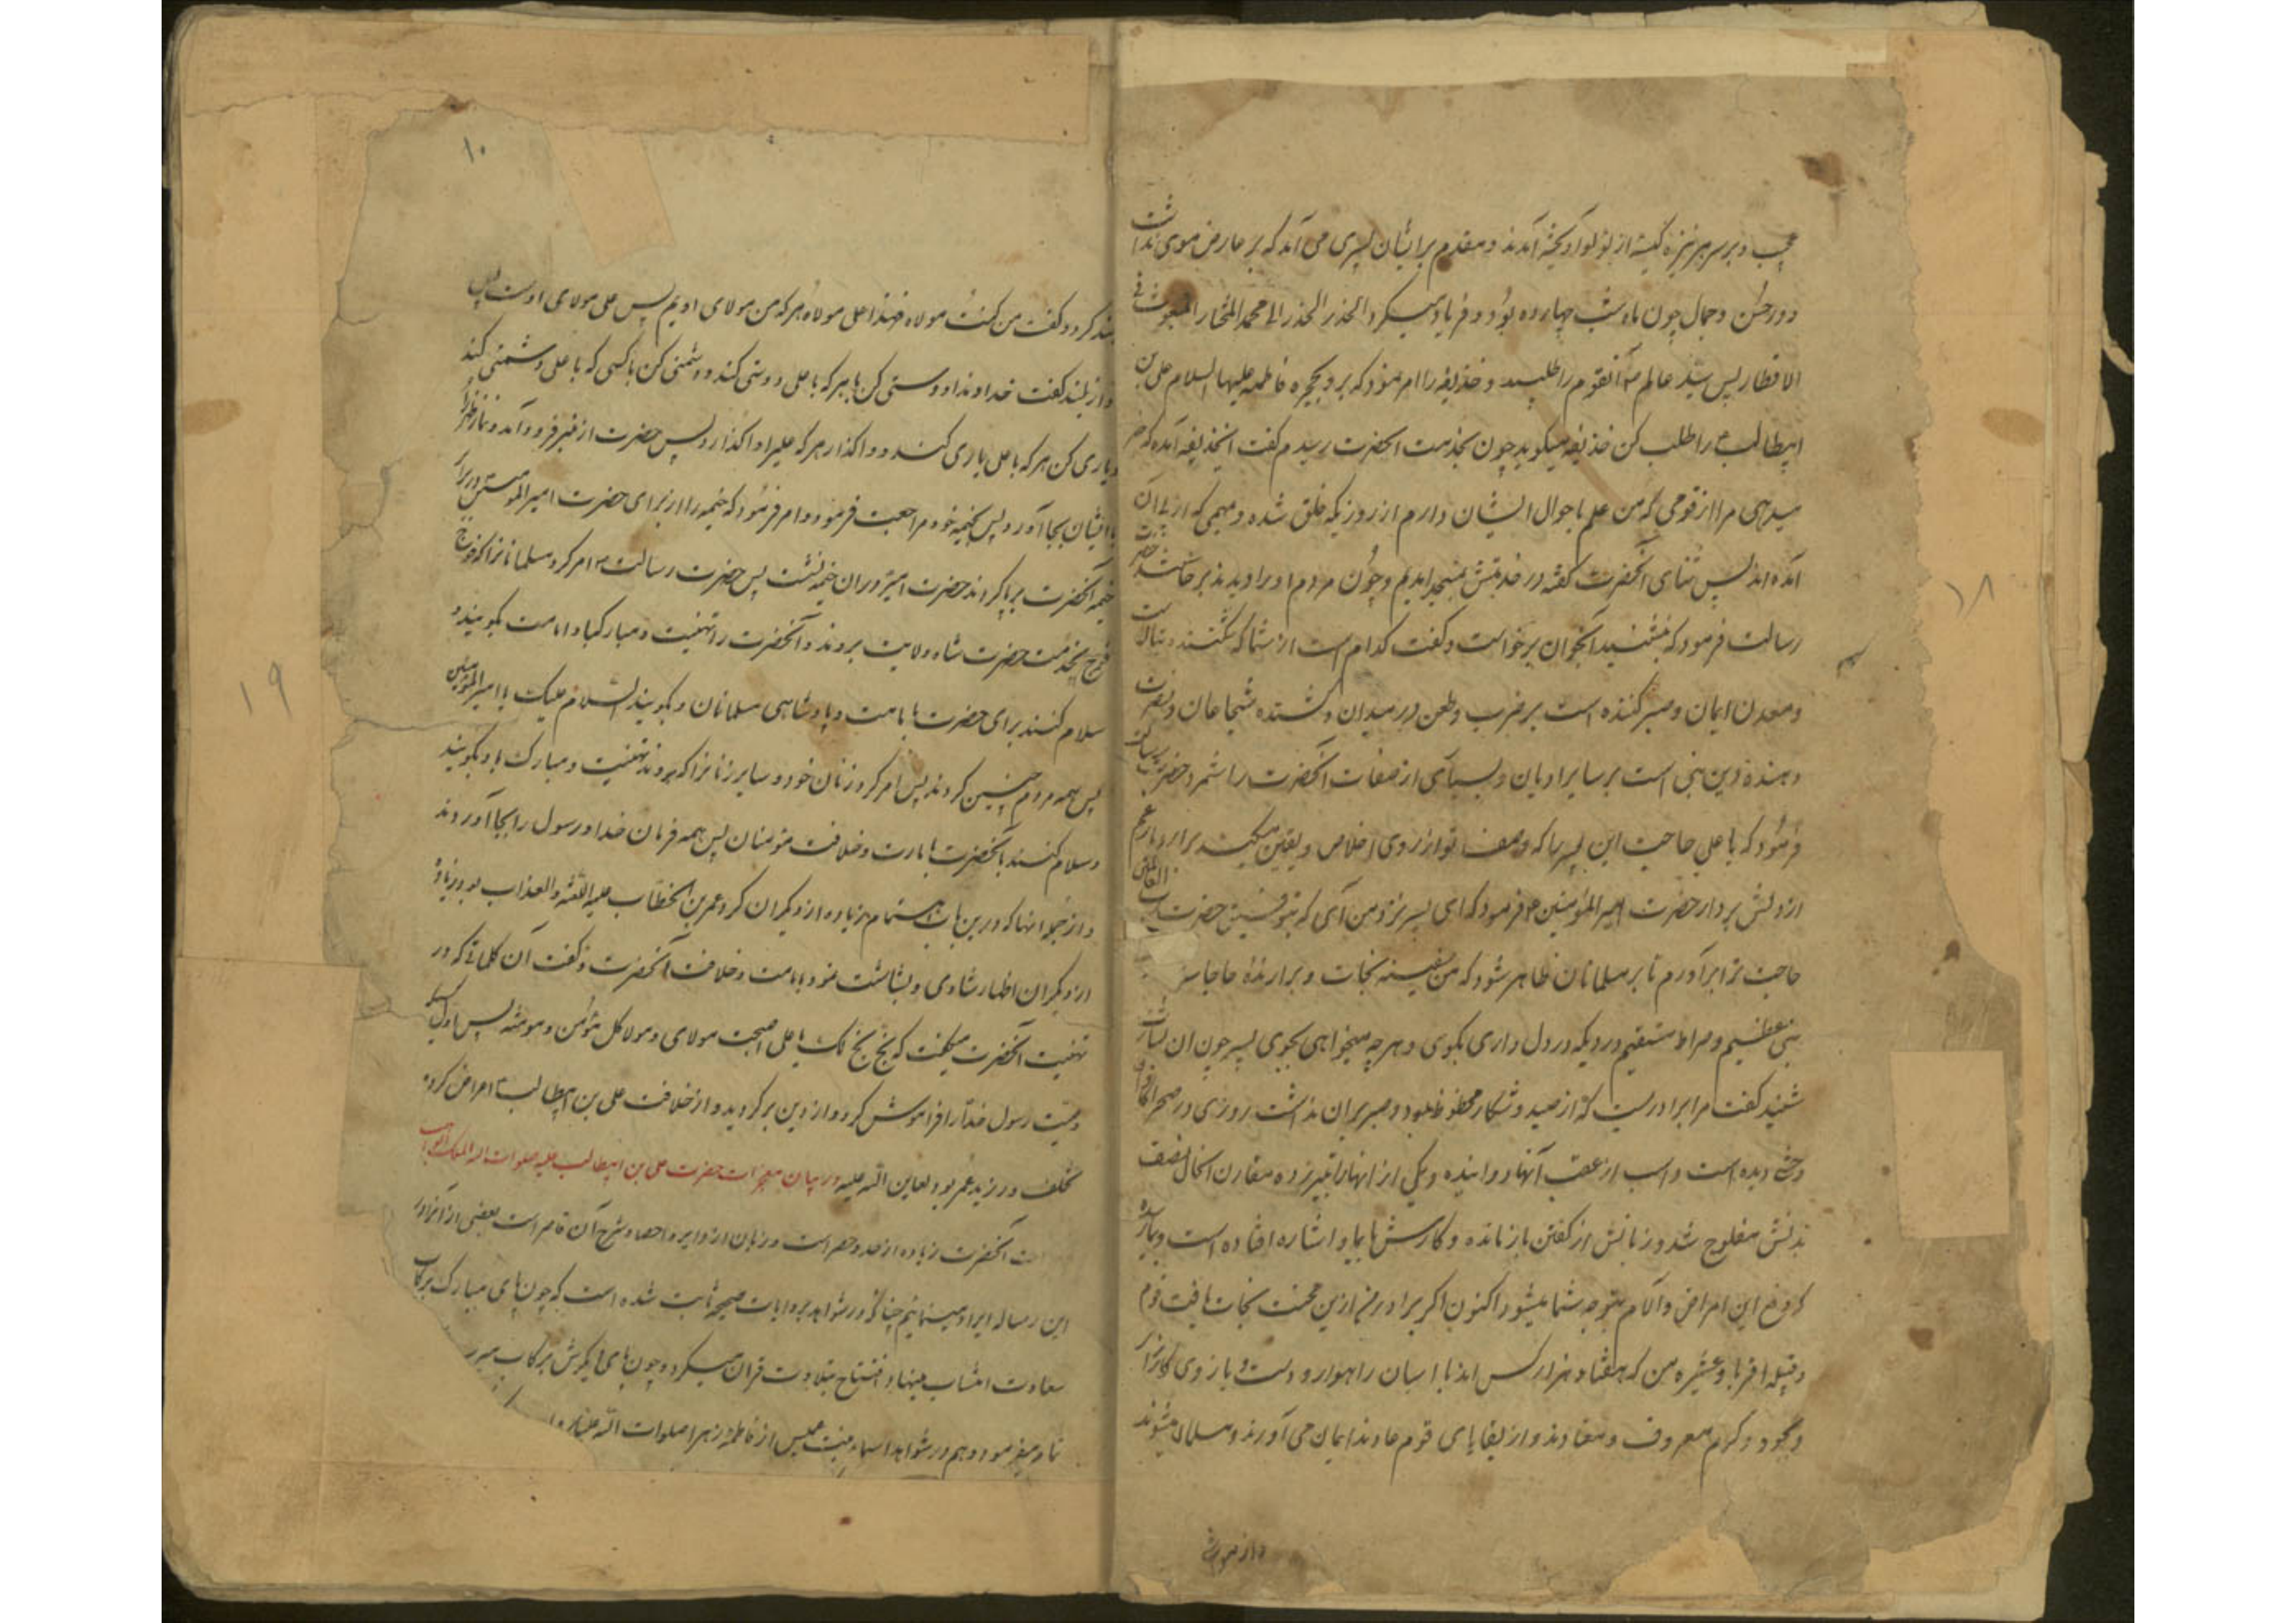 عجب و بر سر هر نیزه کیسهٔ از لؤلؤ آویخته آمدند و مقدم بر ایشان پسری می آمد که بر عارض موی نداشت
و در حسن و جمال چون ماه شب چهارده بود و فریاد میکرد الحذر الحذر الی محمد المختار المبعوث فی
الاقطار پس سید عالم آنقوم را طلبید و حذیفه را امر نمود که برو بحجره فاطمه علیها السلام علی بن
ابیطالب را طلب کن حذیفه میکوید چون بخدمت آنحضرت رسیدم گفت ایحذیفه آمده که خبر
میدهی مرا از قومی که من علم باحوال ایشان دارم از روزیکه خلق شده و مهمی که از برای آن
آمده اند پس ثنای آنحضرت گفته در خدمتش بمسجد آمدیم و چون مردم او را دیدند برخاستند حضرت
رسالت فرمود که بنشینید آنجوان برخواست و گفت کدام است از شما که شکننده بتان است
و معدن ایمان و صبر کننده است بر ضرب و طعن در میدان و کشنده شجاعان و نصرت
دهنده دین نبی است بر سایر ادیان و بسیاری از صفات آنحضرت را شمرد حضرت رسالت
فرمود که یا علی حاجت این پسر را که وصف تو از روی اخلاص و یقین میکند برآر و بار غم
از دلش بردار حضرت امیر المؤمنین فرمود که ای پسر نزد من آی که بتوفیق حضرت رب العالمین
حاجت ترا برآورم تا بر مسلمانان ظاهر شود که من سفینه نجات و برآرنده حاجات
نبی عظیم و صراط مستقیم دردیکه در دل داری بکوی و هر چه میخواهی بجوی پسر چون این بشارت
شنید گفت مرا برادریست که از صید و شکار محظوظ بود و صبر بر آن نداشت روزی در صحرا گاوان
وحشی دیده است و اسب از عقب آنها دوانیده و یکی از آنها را بتیر زده مقارن آنحال نصف
بدنش مفلوج شد و زبانش از گفتن بازمانده و کارش بایما و اشاره افتاده است و بما رسیده
که دفع این امراض و آلام بتوجه شما میشود اکنون اگر برادرم ازین محنت نجات یافت قوم
و قبیله اقربا و عشیره من که هفتاد هزار کس اند با اسبان راهوار و دست و بازوی کارزار
و بجود و کرم معروف و از بقایای قوم عادند ایمان می آورند و مسلمان میشوند
۱۸
۱۰
بلند کرد و گفت من کنت مولاه فهذا علی مولاه هر که من مولای اویم پس علی مولای اوست پس
آواز بلند گفت خداوندا دوستی کن با هر که با علی دوستی کند و دشمنی کن با کسی که با علی دشمنی کند
و یاری کن هر که با علی یاری کند و واگذار هر که علیرا واگذارد پس حضرت از منبر فرود آمد و نماز ظهر را
با ایشان بجا آورد پس بخیمه خود مراجعت فرمود و امر فرمود که خیمه را از برای حضرت امیر المؤمنین در برابر
خیمه آنحضرت بر پا کردند حضرت امیر در آن خیمه نشست پس حضرت رسالت امر کرد مسلمانانرا که فوج
فوج بخدمت حضرت شاه ولایت بروند و آنحضرت را تهنیت و مبارکباد امامت بگویند و
سلام کنند برای حضرت بامامت و پادشاهی مسلمانان و بگویند السلام علیک یا امیر المؤمنین
پس همه مردم چنین کردند پس امر کرد زنان خود و سایر زنانرا که بروند تهنیت و مبارک باد بگویند
و سلام کنند بآنحضرت بامارت و خلافت مؤمنان پس همه فرمان خدا و رسول را بجا آوردند
و از جمله آنها که درین باب اهتمام زیاده از دیگران کرد عمر بن الخطاب علیه اللعنه و العذاب بود زیاده
از دیگران اظهار شادی و بشاشت نمود بامامت و خلافت آنحضرت و گفت آن کلماتی که در
تهنیت آنحضرت میگفت که بخ بخ لک یا علی اصبحت مولای و مولا کل مؤمن و مؤمنه پس اول کسیکه
وصیت رسول خدا را فراموش کرد و از دین برگردید و از خلافت علی بن ابیطالب اعراض کرده
تخلف ورزید عمر بود لعاین الله علیه در بیان معجزات حضرت علی بن ابیطالب علیه صلوات الله الملک الوهاب
آنحضرت زیاده از حد و حصر است و زبان از ایراد احصا و شرح آن قاصر است بعضی از آنرا در
این رساله ایراد مینمائیم چنانکه در شواهد بروایات صحیحه ثابت شده است که چون پای مبارک برکاب
سعادت انتساب مینهاد افتتاح بتلاوت قرآن میکرد و چون پای دیگرش برکاب میر
تمام میفرمود و هم در شواهد اسماء بنت عمیس از فاطمه زهرا صلوات الله علیها
۱۹